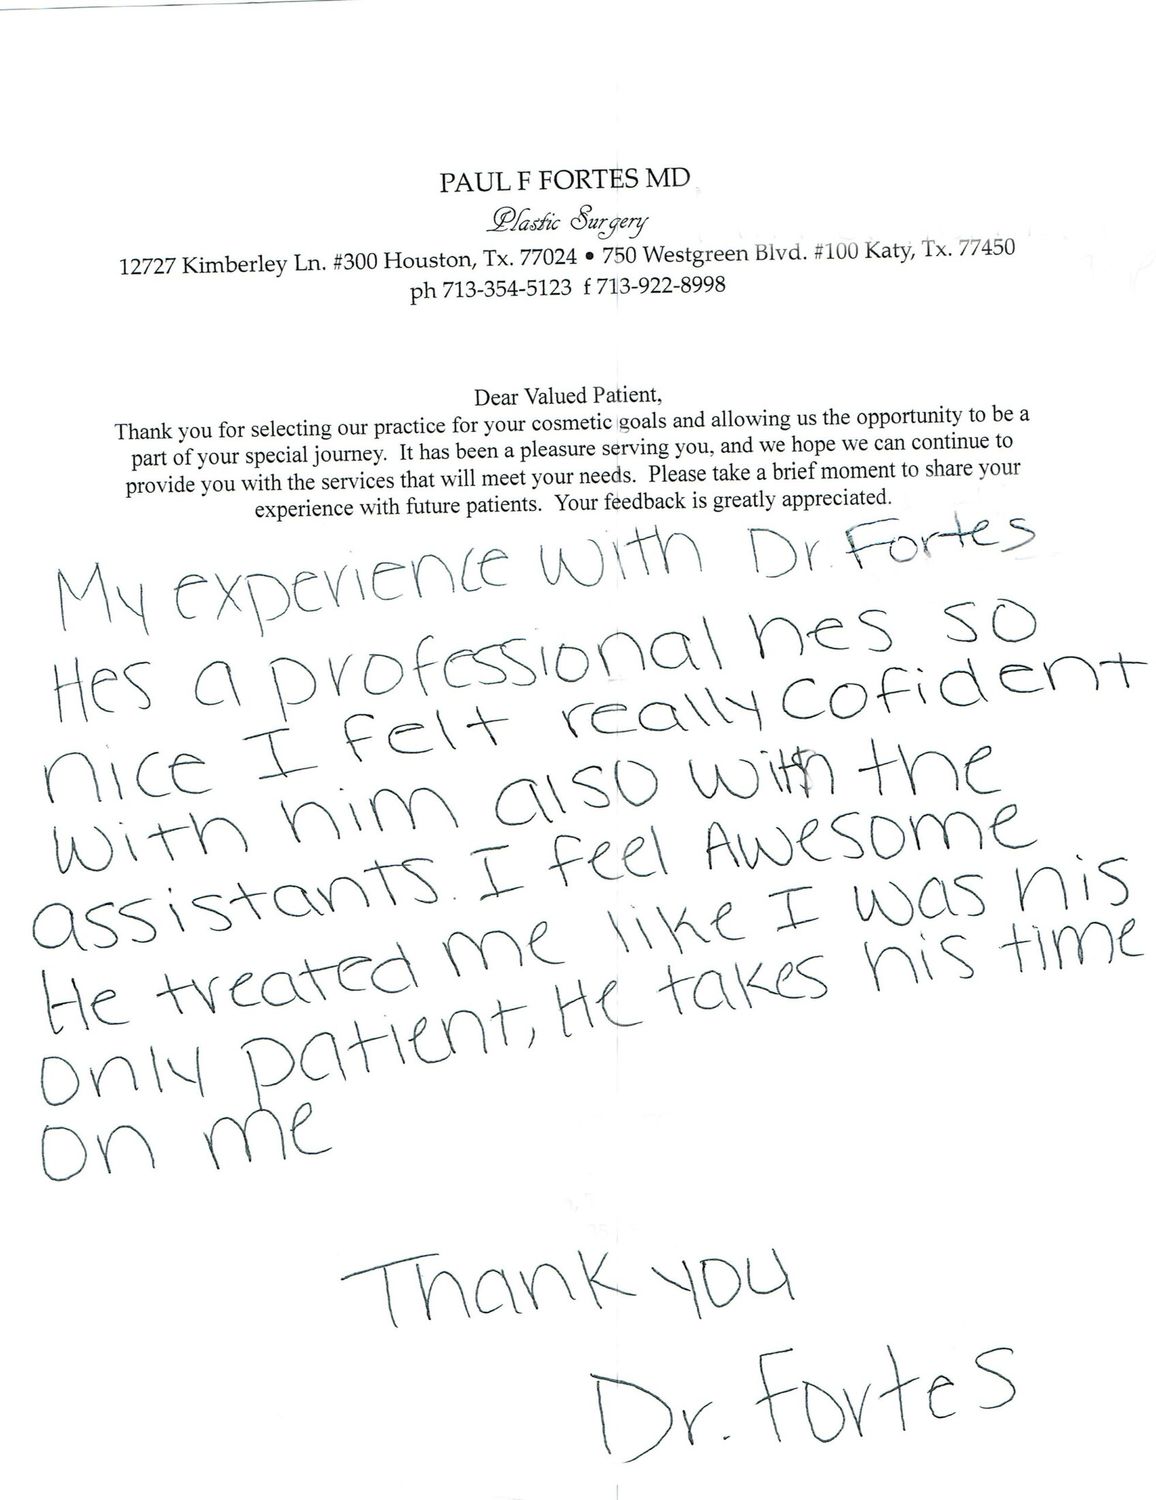 PAUL F FORTES MD
Plastic Surgery
12727 Kimberley Ln. #300 Houston, Tx. 77024 • 750 Westgreen Blvd. #100 Katy, Tx. 77450
ph 713-354-5123 f 713-922-8998
Dear Valued Patient,
Thank you for selecting our practice for your cosmetic goals and allowing us the opportunity to be a
part of your special journey. It has been a pleasure serving you, and we hope we can continue to
provide you with the services that will meet your needs. Please take a brief moment to share your
experience with future patients. Your feedback is greatly appreciated.
My experience with Dr. Fortes
Hes a professional hes so
nice I felt really cofident
with him also with the
assistants. I feel Awesome
He treated me like I was his
only patient, He takes his time
on me
Thank you
Dr. Fortes